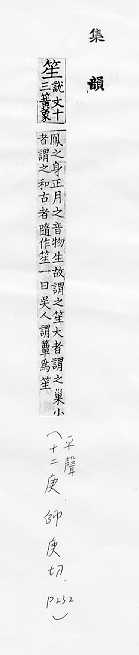 集韻
笙
說文十
三簧象
鳳之身正月之音物生故謂之笙大者謂之巢小
者謂之和古者隨作笙一曰吳人謂簟為笙
平聲
(十二庚.師庚切.P232)